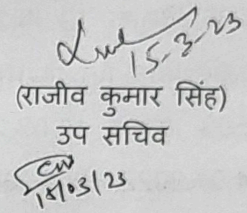 15-3-23
(राजीव कुमार सिंह)
उप सचिव
15/03/23